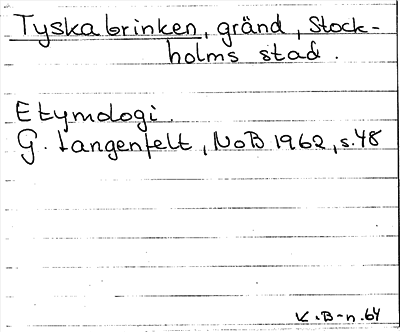 Tyska brinken, gränd, Stock-
holms stad.
Etymologi.
G. Langenfelt, NoB 1962, s.48
K.B-n.64